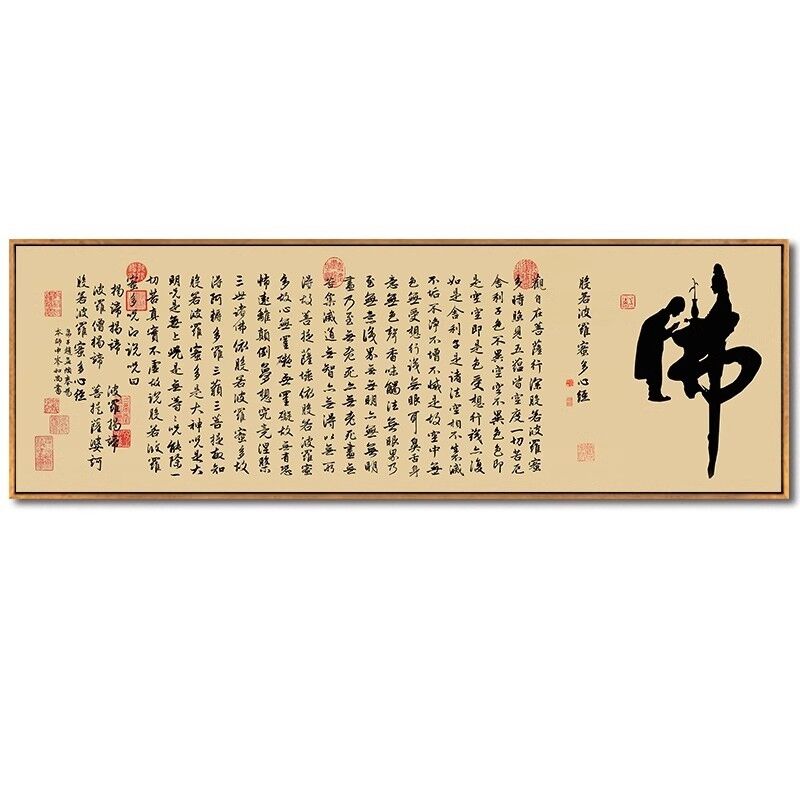 佛
般若波羅蜜多心經
觀自在菩薩行深般若波羅蜜
多時照見五蘊皆空度一切苦厄
舍利子色不異空空不異色色即
是空空即是色受想行識亦復
如是舍利子是諸法空相不生滅
不垢不淨不增不減是故空中無
色無受想行識無眼耳鼻舌身
意無色聲香味觸法無眼界乃
至無意識界無無明亦無無明
盡乃至無老死亦無老死盡無
苦集滅道無智亦無得以無所
得故菩提薩埵依般若波羅蜜
多故心無罣礙無罣礙故無有恐
怖遠離顛倒夢想究竟涅槃
三世諸佛依般若波羅蜜多故
得阿耨多羅三藐三菩提故知
般若波羅蜜多是大神咒是大
明咒是無上咒是無等等咒能除一
切苦真實不虛故說般若波羅
蜜多咒即說咒曰
揭諦揭諦 波羅揭諦
波羅僧揭諦 菩提薩婆訶
般若波羅蜜多心經
弟子趙孟頫奉為
本師中峯和尚書